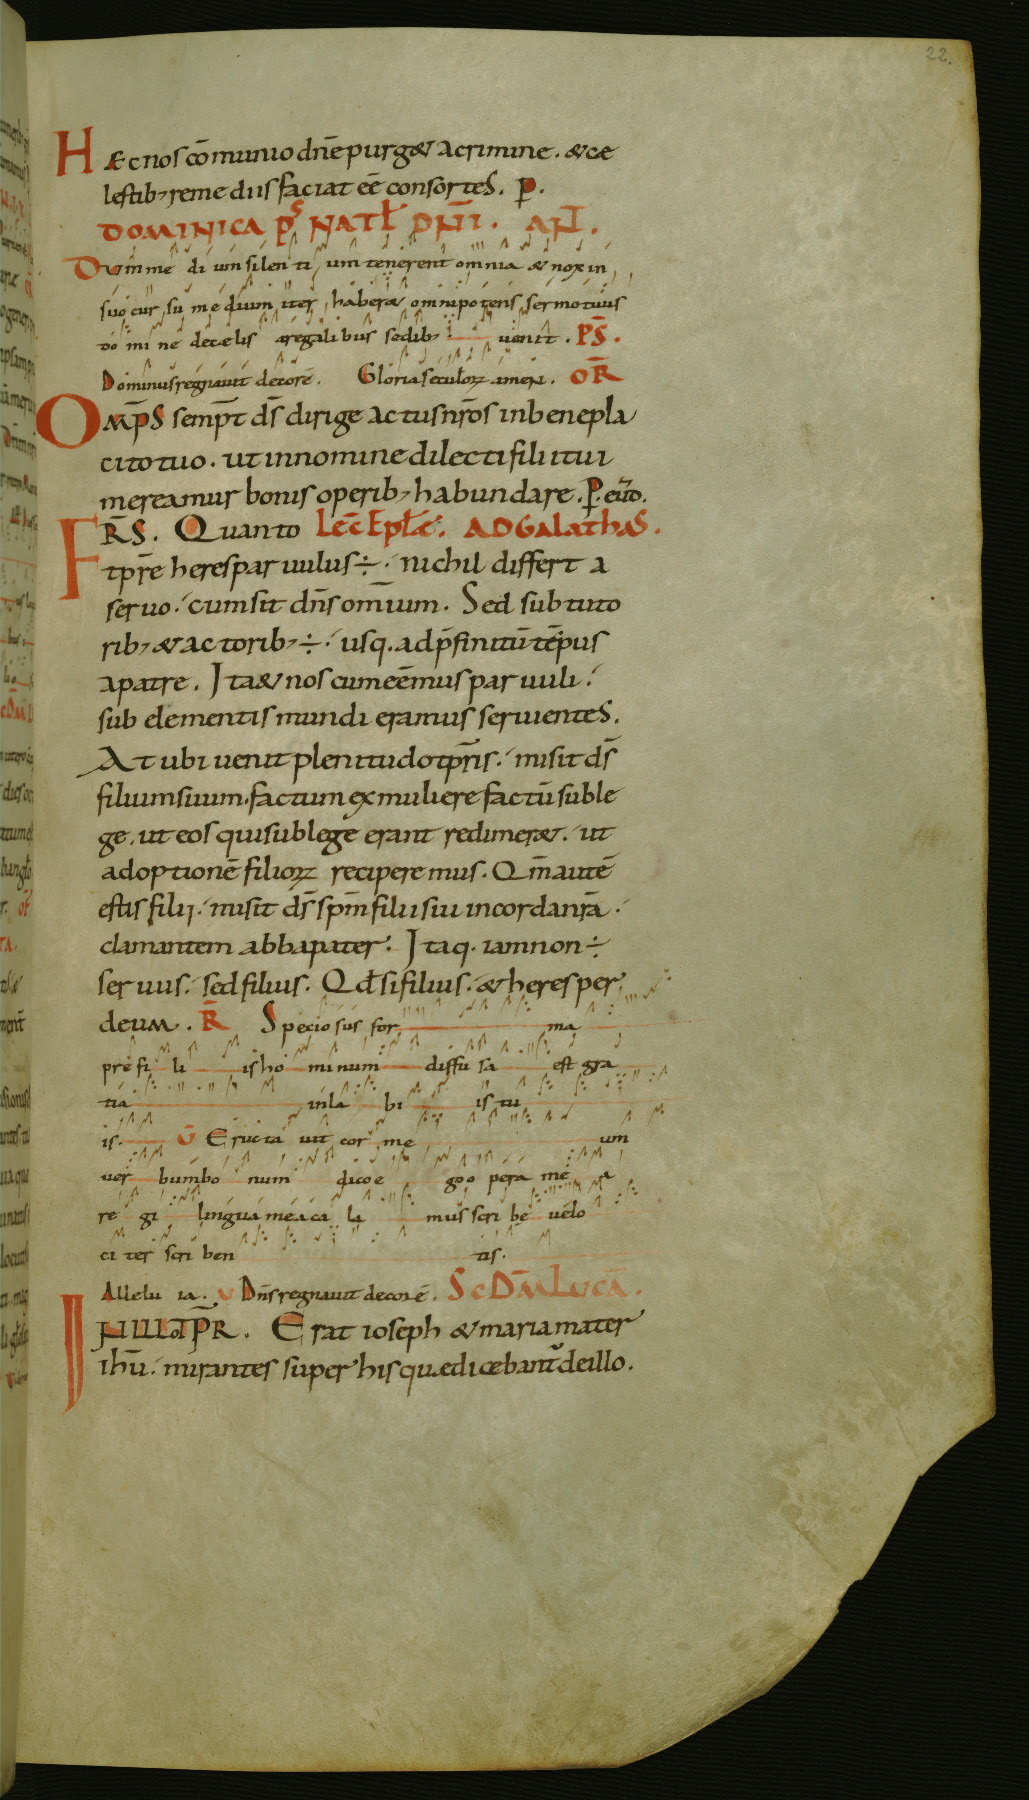 22.
Hæc nos cōmunio dn̄e purg& a crimine. & cæ
lestib; remediis faciat eē consortes. P.
DOMINICA P^S NATL̄ DN̄I. AN̄T.
Dum me di um silen ti um tenerent omnia & nox in
suo cur su me dium iter haber& omnipotens sermo tuus
do mi ne de cælis a regali bus sedib; uenit. PS̄.
Dominus regnauit decorē. Gloria seculoꝝ amen. OR̄
OMP̄S semp̄t ds̄ dirige actus nr̄os in benepla
cito tuo. ut in nomine dilecti filii tui
mereamur bonis operib; habundare. P. eūd.
FR̄S. Quanto LEC̄ EPLÆ. AD GALATHAS.
tp̄re heres paruulus ÷. nichil differt a
seruo. cum sit dn̄s om̄ium. Sed sub tuto
rib; & actorib; ÷. usq. ad p̄finitū tēpus
a patre. Ita & nos cum eēmus paruuli.
sub elementis mundi eramus seruientes.
At ubi uenit plenitudo tp̄ris. misit ds̄
filium suum. factum ex muliere factū sub le
ge. ut eos qui sub lege erant redimer&. ut
adoptionē filioꝝ reciperemus. Qm̄ autē
estis filii. misit ds̄ spm̄ filii sui in corda nr̄a.
clamantem abba pater. Itaq. iam non ÷
seruus. sed filius. Qd̄ si filius. & heres per
deum. R̄ Speciosus for ma
pre fi li is ho minum diffu sa est gra
tia in la bi is tu
is. V̄ Eructa uit cor me um
uer bum bo num dico e go o pera me a
re gi lingua mea ca la mus scri be uelo
ci ter scri ben tis.
Allelu ia. V Dn̄s regnauit decorē. SC̄DM̄ LUCĀ.
IN ILLO TP̄R. Erat ioseph & maria mater
ihū. mirantes super his quæ dicebant̄ de illo.